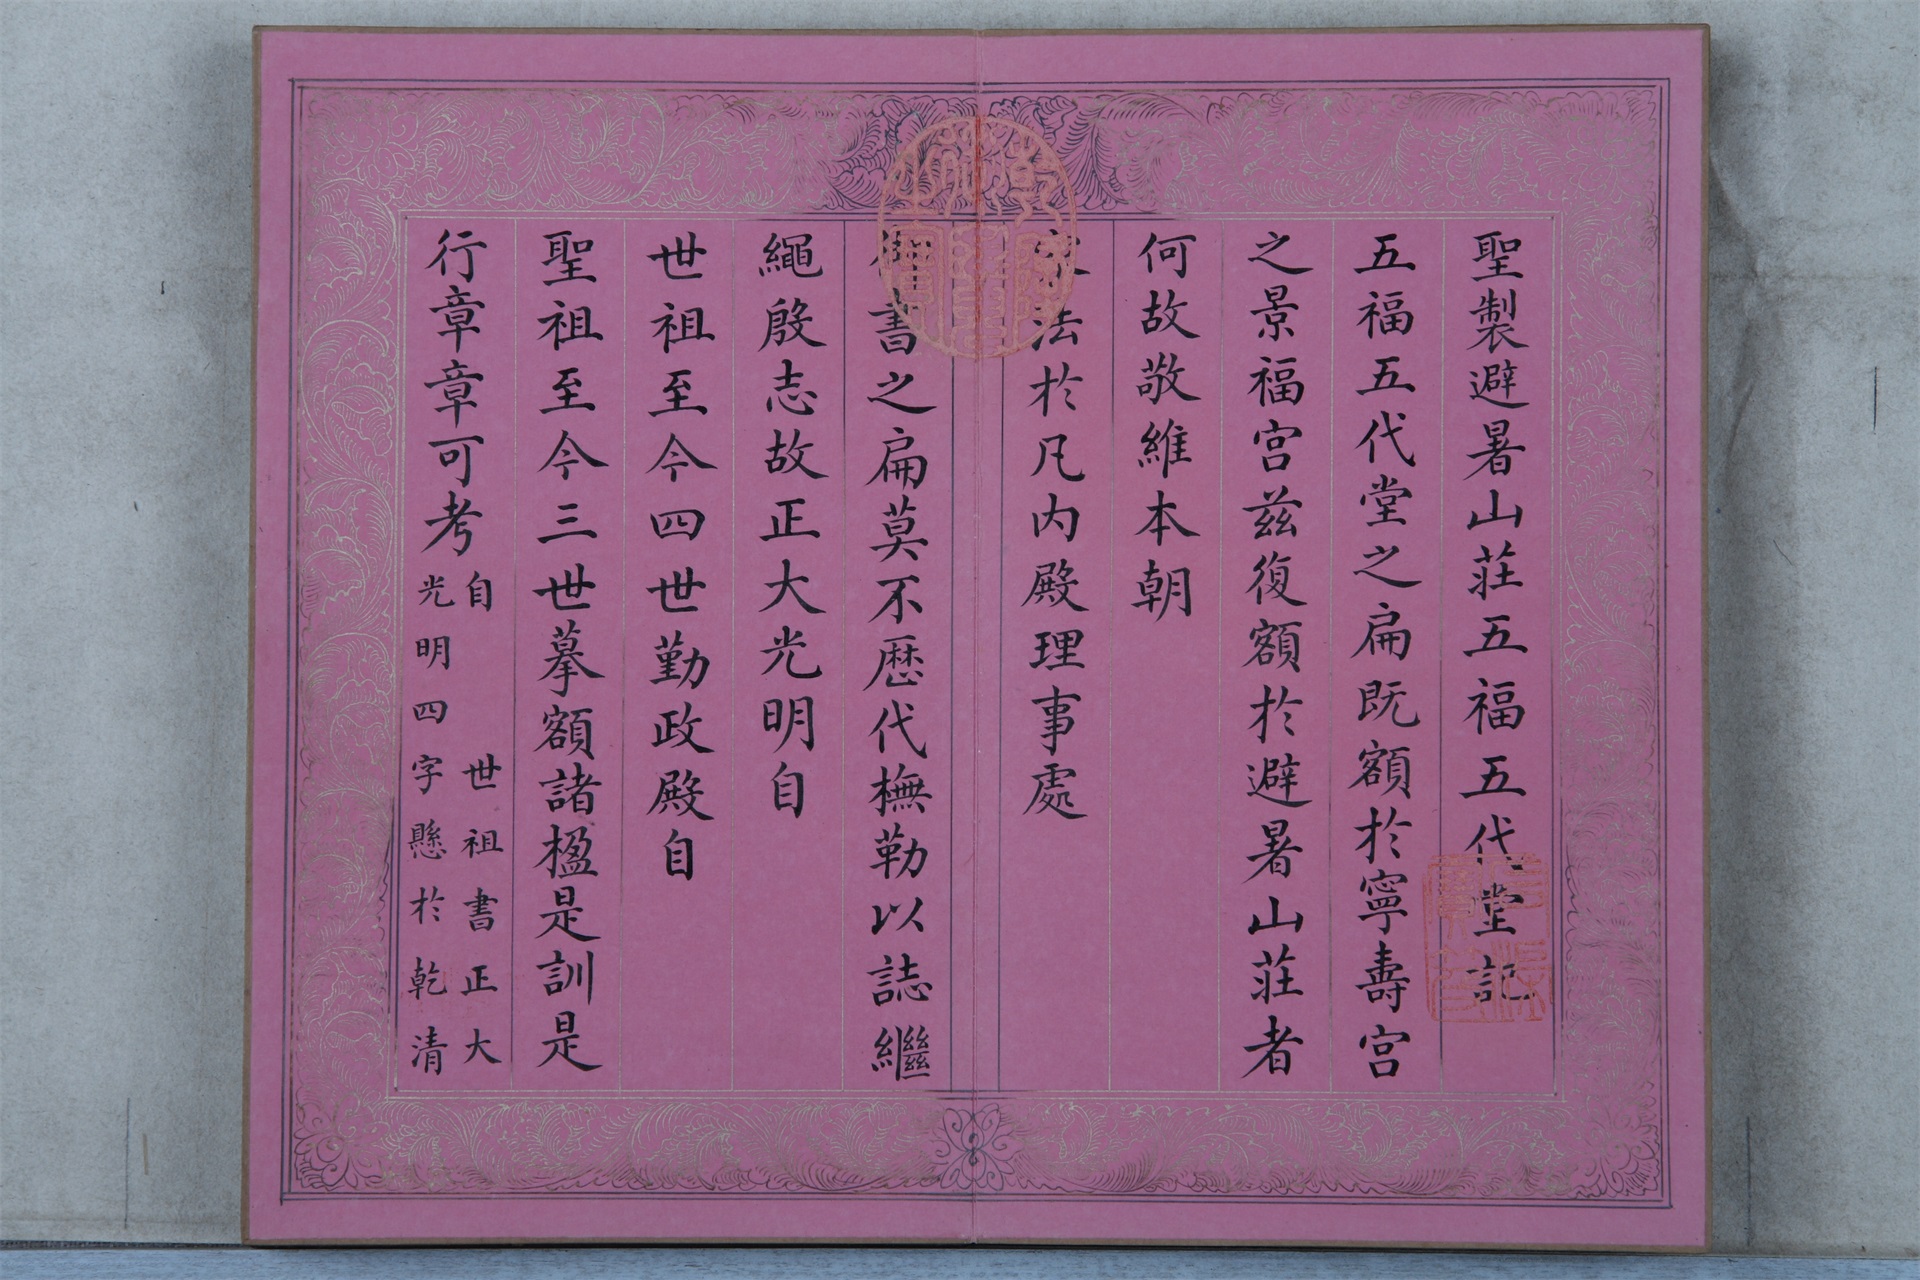 聖製避暑山莊五福五代堂記
五福五代堂之扁既額於寧壽宮
之景福宮茲復額於避暑山莊者
何故敬維本朝
家法於凡內殿理事處
御書之扁莫不歷代橅勒以誌繼
繩殷志故正大光明自
世祖至今四世勤政殿自
聖祖至今三世摹額諸楹是訓是
行章章可考
自 世祖書正大
光明四字懸於乾清
乾隆御覽之寶